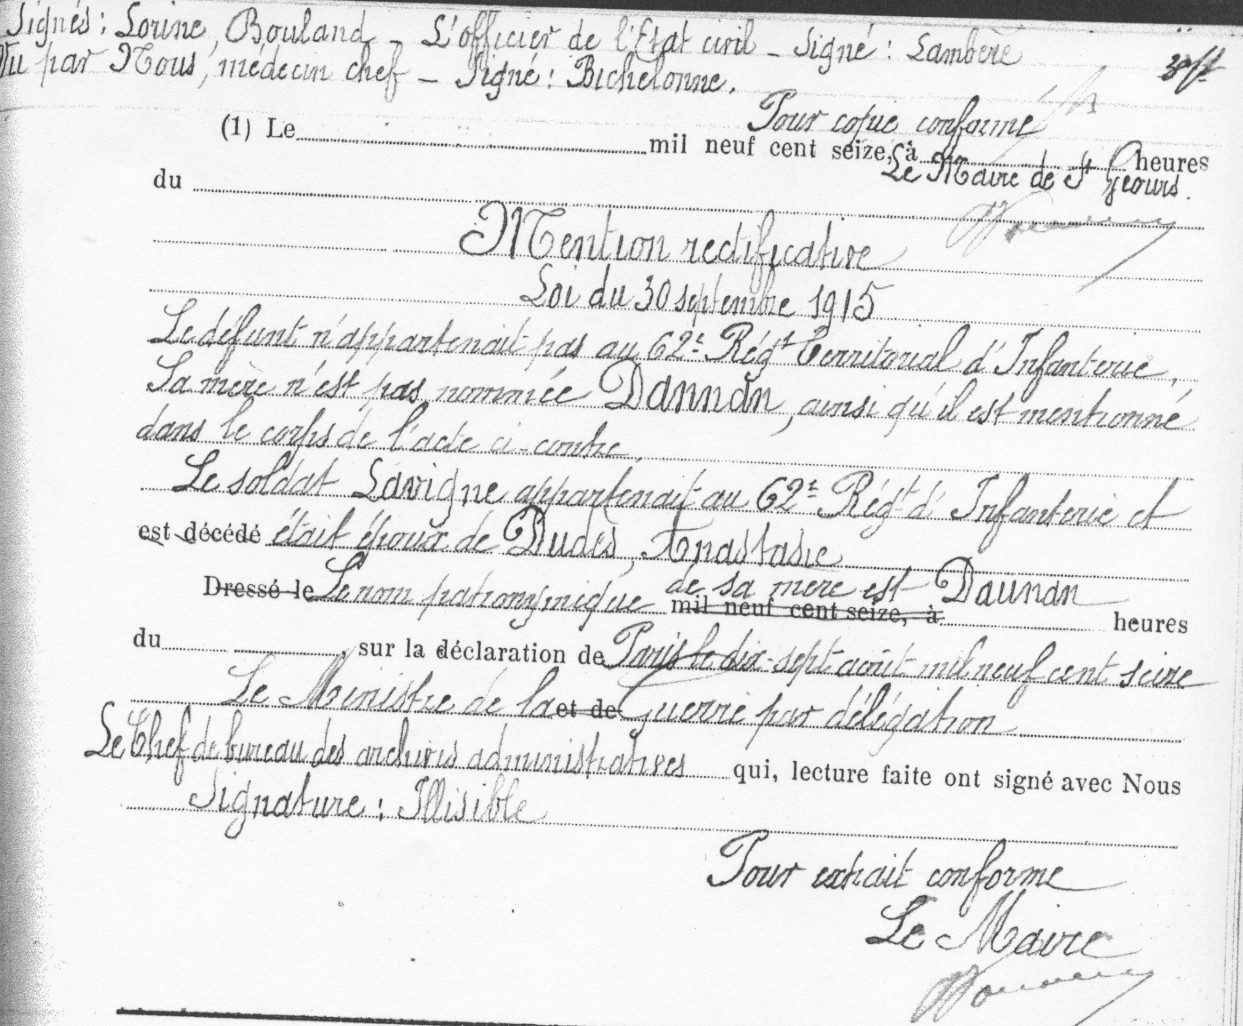 Signés : Lorine, Bouland _ L'officier de l'Etat civil _ Signé : Lambere
Vu par Nous, médecin chef _ Signé : Bichelonne.
Pour copie conforme
(1) Le mil neuf cent seize, à heures
Le Maire de St Geours.
du
Mention rectificative
Loi du 30 septembre 1915
Le défunt n'appartenait pas au 62e Régt Territorial d'Infanterie,
Sa mère n'est pas nommée Dannan, ainsi qu'il est mentionné
dans le corps de l'acte ci-contre.
Le soldat Lavigne appartenait au 62e Régt d'Infanterie et
est décédé était époux de Dudès, Anastasie
de sa mère est Daunan
Dressé le Le nom patronymique mil neuf cent seize, à heures
du , sur la déclaration de Paris le dix-sept août mil neuf cent seize
Le Ministre de la et de Guerre par délégation
Le Chef de bureau des archives administratives qui, lecture faite ont signé avec Nous
Signature : Illisible
Pour extrait conforme
Le Maire